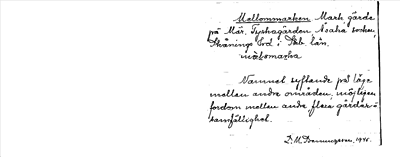 Mellommarken Mark gärde
på Mär. Tyskagården Åsaka socken,
Skånings hd i Skb. län.
mäbomarka
Namnet syftande på läge
mellan andra områden, möjligen
fordom mellan andra flera gårdar i
samfällighet.
1946.